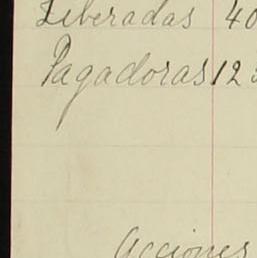 Liberadas 40
Pagadoras 12
Acciones